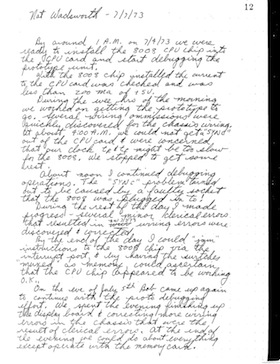 12
Nat Wadsworth - 7/7/73
By around 1 A.M. on 7/4/73 we were
ready to install the 8008 CPU chip into
the CPU card and start debugging the
prototype unit.
With the 8008 chip installed the current
to the CPU card was checked and was
less than 200 ma of +5V.
During the wee hrs of the morning
we worked on getting the prototype to
go. Several wiring ommissions were
quickly discovered in the chassis wiring.
At about 4:00 A.M. we could not get "SYNC"
out of the CPU card & were concerned
that our clock might be too slow
for the 8008. We stopped to get some
rest.
About noon I continued debugging
operations. The "SYNC" problem turned
out to be caused by a faulty socket
that the 8008 was plugged into!
During the rest of the day I made
progress - several minor clerical errors
that resulted in wiring errors were
discovered & corrected.
By the end of the day I could "jam"
instructions to the 8008 chip via the
interrupt port & by having the switches
"mixed" as memory, could ascertain
that the CPU chip appeared to be working
O.K..
On the eve of July 5th Bob came up again
to continues with the proto debugging
effort. We spent the evening finishing up
the display board & correcting more wiring
errors in the chassis that were the
result of clerical errors. At the end of
the evening we could do about everything
except operate with the memory card.